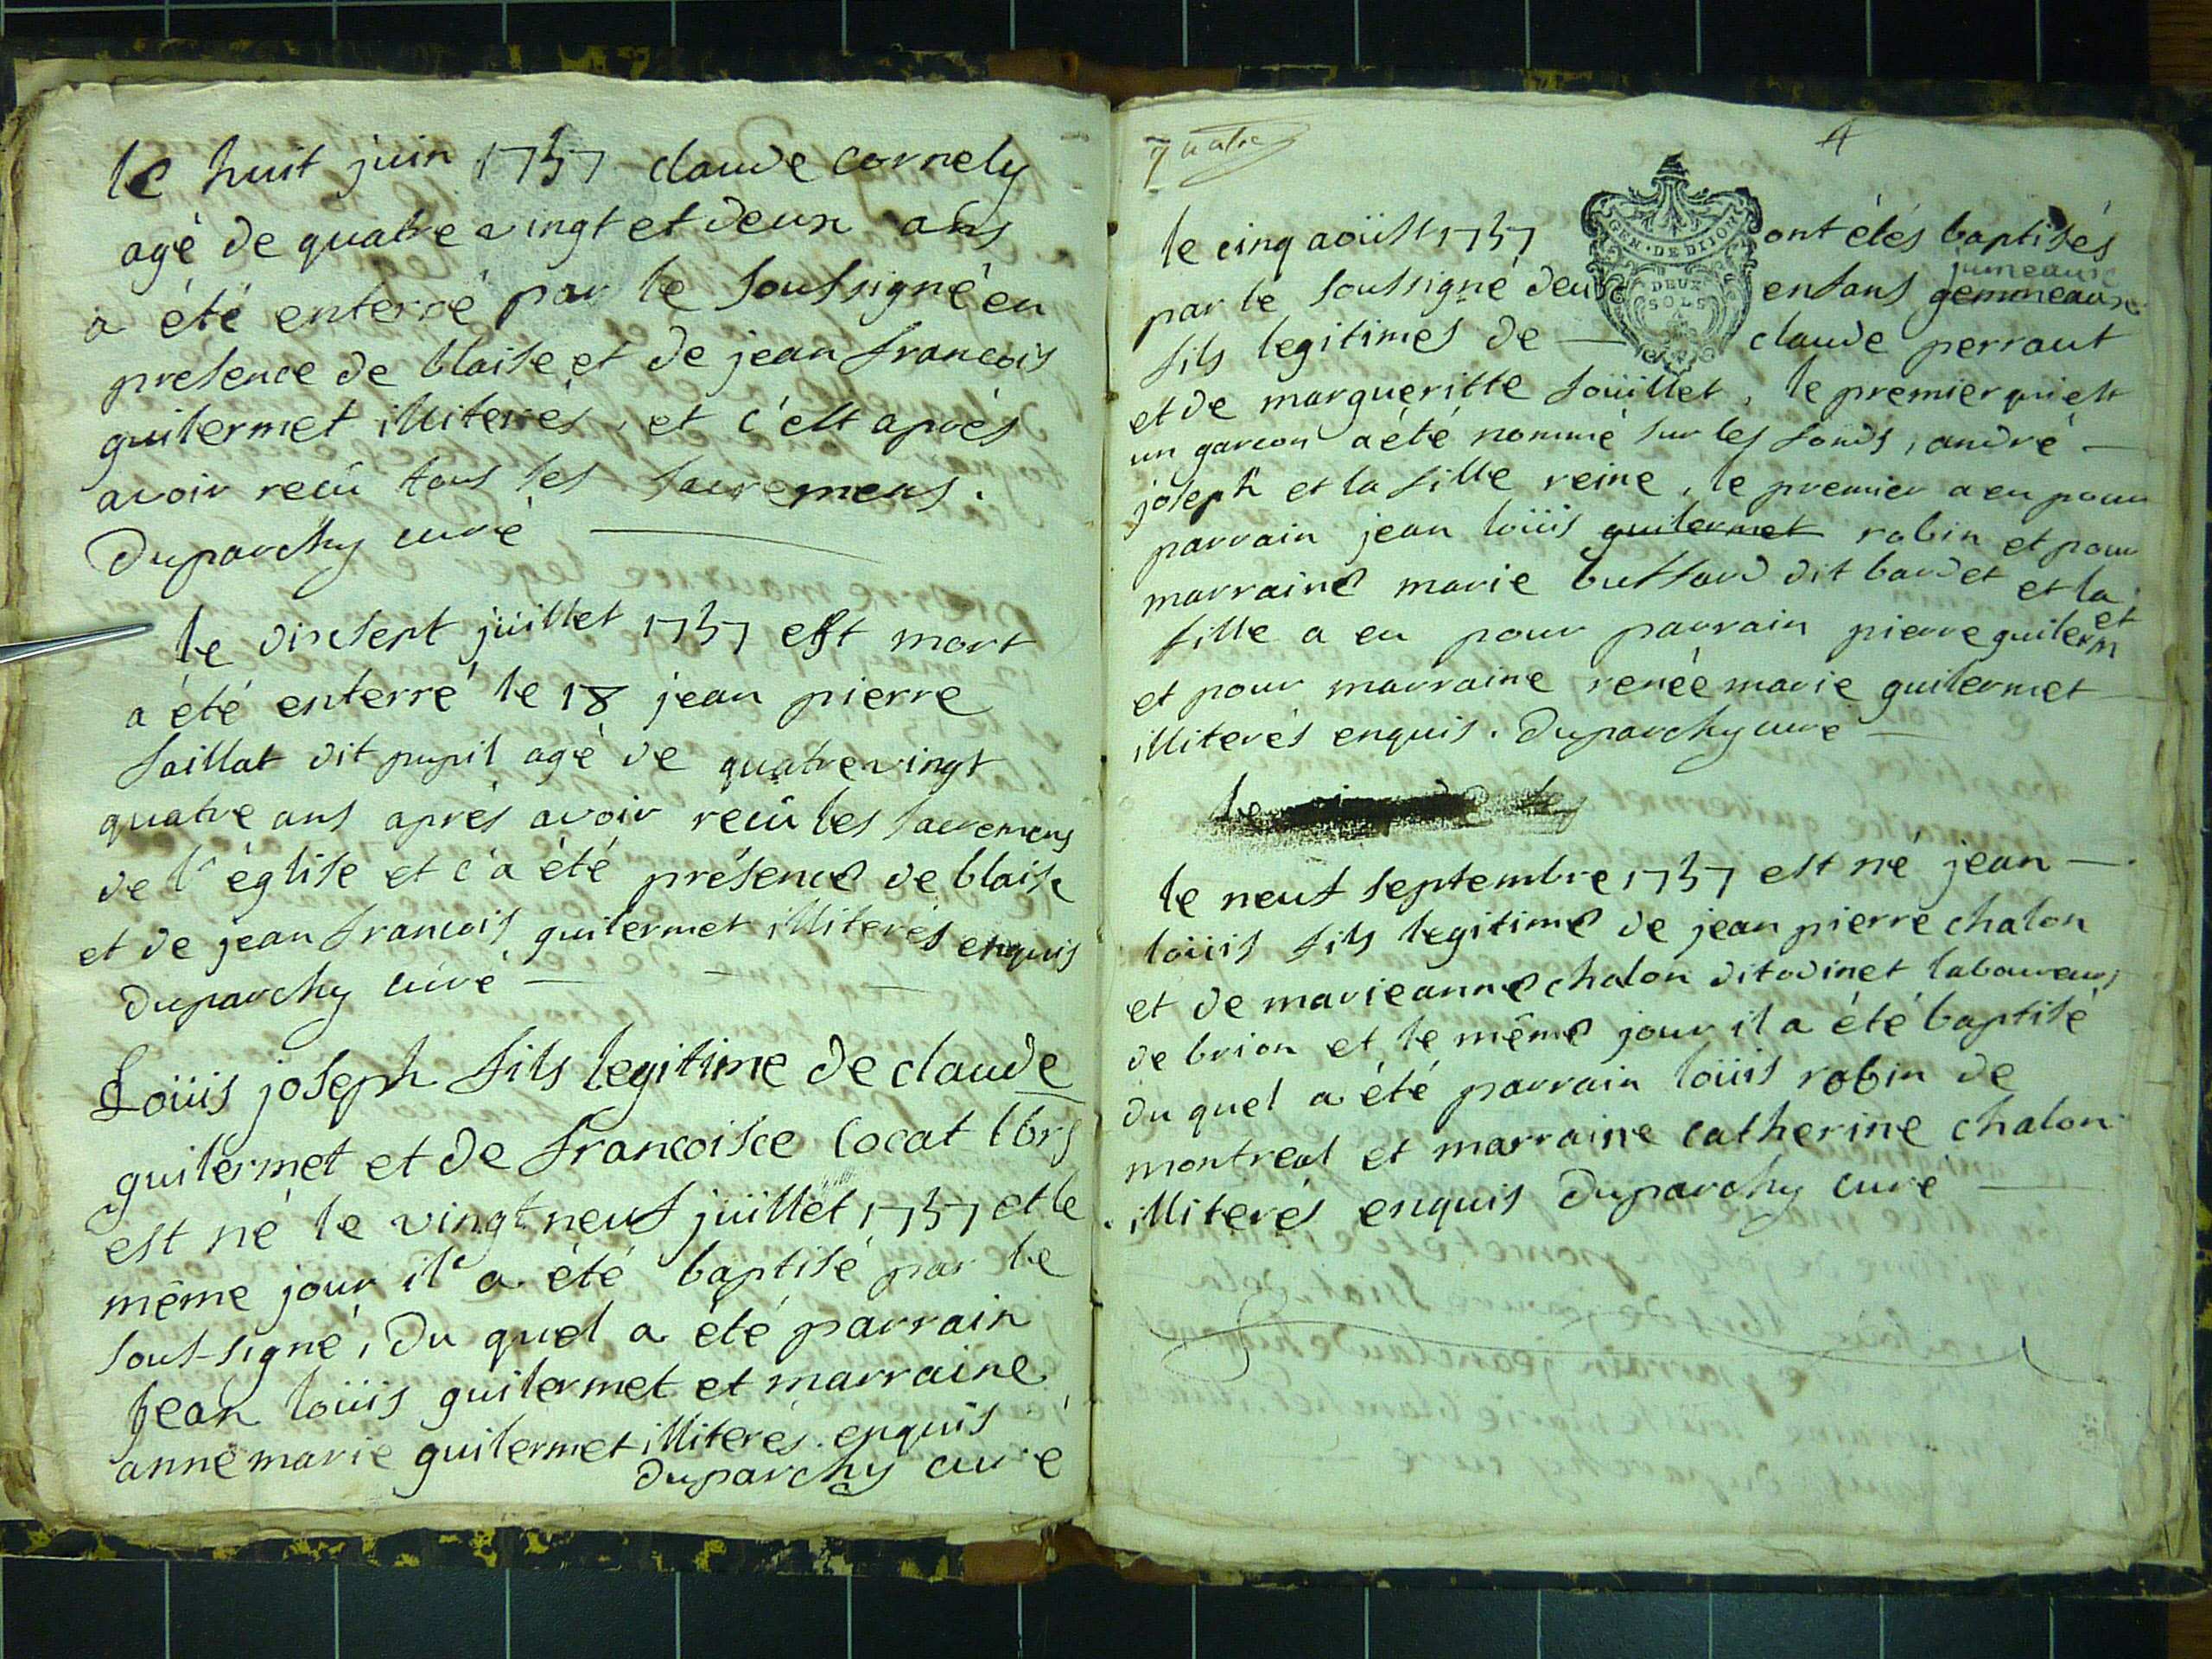 le huit juin 1757 claude cornely
agé de quatre vingt et deux ans
a été enterré par le soussigné en
presence de blaise et de jean francois
guilermet illiterés, et c'est aprés
avoir recû tous les sacremens.
Duparchy curé
le dixsept juillet 1757 est mort
a été enterré le 18 jean pierre
saillat dit pupil agé de quatrevingt
quatre ans aprés avoir recû les sacremens
de l'église et c'a été présence de blaise
et de jean francois guilermet illiterés enquis
Duparchy curé
Loüis joseph fils legitime de claude
guilermet et de francoisce locat lbrs
est né le vingt neuf juillet 1757 et le
même jour il a été baptisé par le
sous-signé, du quel a été parrain
jean loüis guilermet et marraine
anne marie guilermet illiterés enquis
duparchy curé
quatre
4
le cinq aoüst 1757 ont étés baptisés
GEN·DE DIJON
DEUX SOLS
jumeaux
par le soussigné deux enfans gemmeaux
fils legitimes de claude perraut
et de margueritte soüillet, le premier qui est
un garcon a été nommé sur les fonds, andré
joseph et la fille reine, le premier a eu pour
parrain jean loüis guilermet robin et pour
marraine marie buffard dit bardet et la
fille a eu pour parrain pierre guilermet
et pour marraine renée marie guilermet
illiterés enquis. Duparchy curé
le
le neuf septembre 1757 est né jean
loüis fils legitime de jean pierre chalon
et de marieanne chalon ditodinet laboureurs
de brion et le même jour il a été baptisé
du quel a été parrain loüis robin de
montreal et marraine catherine chalon
illiterés enquis Duparchy curé